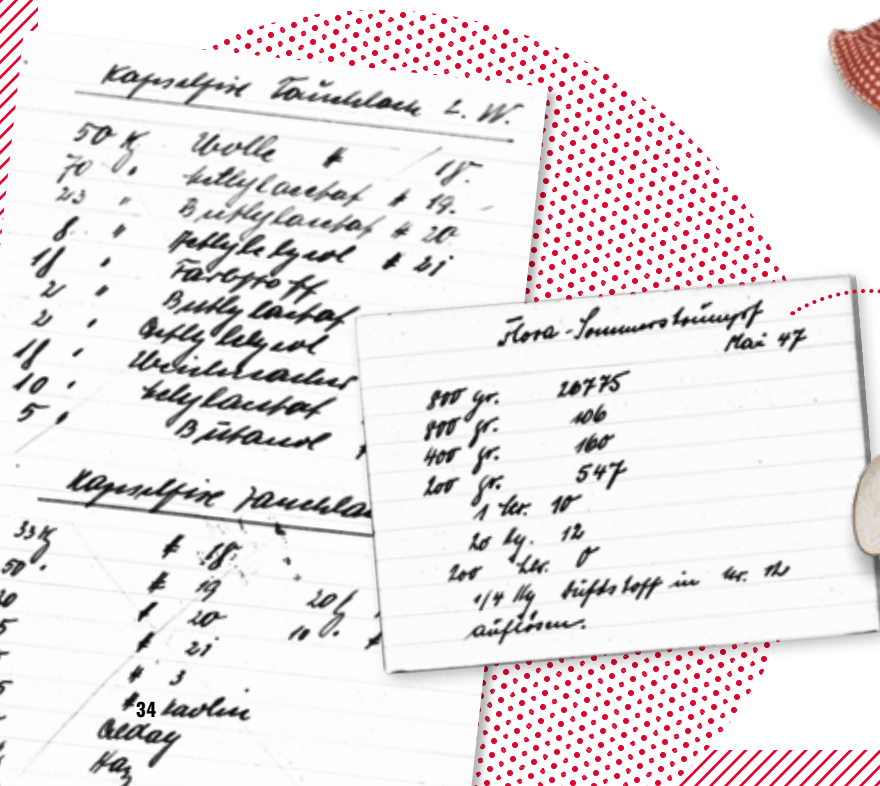 Kapselfixe Tauchlack L. W.
50 Kg Wolle # 18.
70 " Aethylacetat # 19.
23 " Butylacetat # 20
8 " Aethylglycol # 21
18 " Farbstoff
2 " Butylacetat
2 " Aethylglycol
18 " Weichmacher
10 " Aethylacetat
5 " Butanol
Kapselfixe Tauchlack
33 Kg # 18.
50 " # 19 20
# 20 10
# 21
# 3
# Kaolin
34
Flora - Sommerstrumpf
Mai 47
800 gr. 26775
800 gr. 106
400 gr. 160
200 gr. 547
1 ltr. 10
20 kg. 12
200 ltr. 0
1/4 Kg Süßstoff in
auflösen.